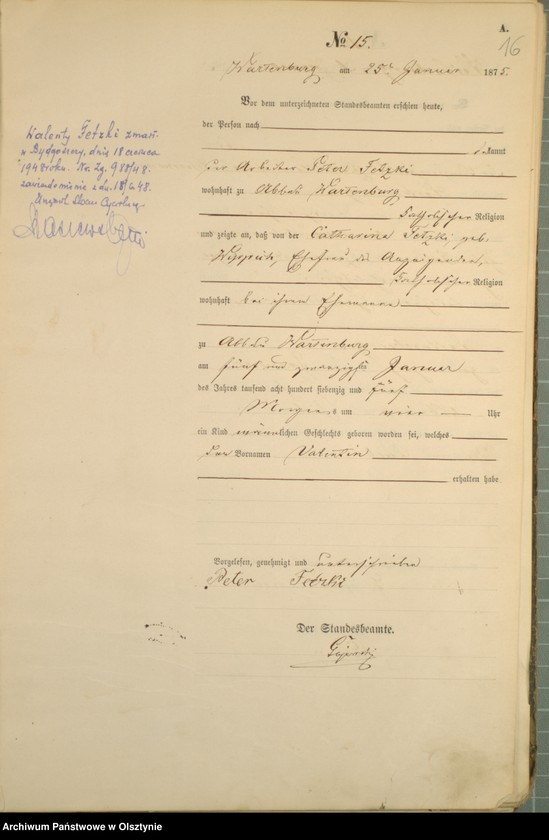 A.
16
№ 15.
Wartenburg am 25t Januar 1875.
Vor dem unterzeichneten Standesbeamten erschien heute,
der Person nach
kannt
der Arbeiter Peter Fetzki
wohnhaft zu Abbau Wartenburg
katholischer Religion
und zeigte an, daß von der Catharina Fetzki, geb.
Ehefrau des Anzeigenden,
katholischer Religion
wohnhaft bei ihrem Ehemanne
zu Abbau Wartenburg
am fünf und zwanzigsten Januar
des Jahres tausend acht hundert siebenzig und fünf
Morgens um vier Uhr
ein Kind männlichen Geschlechts geboren worden sei, welches
den Vornamen Valentin
erhalten habe
Vorgelesen, genehmigt und unterschrieben
Peter Fetzki
Der Standesbeamte.
Walenty Fetzki zmarł
w Bydgoszczy, dnia 18 czerwca
1948 roku. Nr. 2g. 988/48.
zawiadomienie z dn. 18/6 48.
Urzędu Stanu Cywilnego
Archiwum Państwowe w Olsztynie